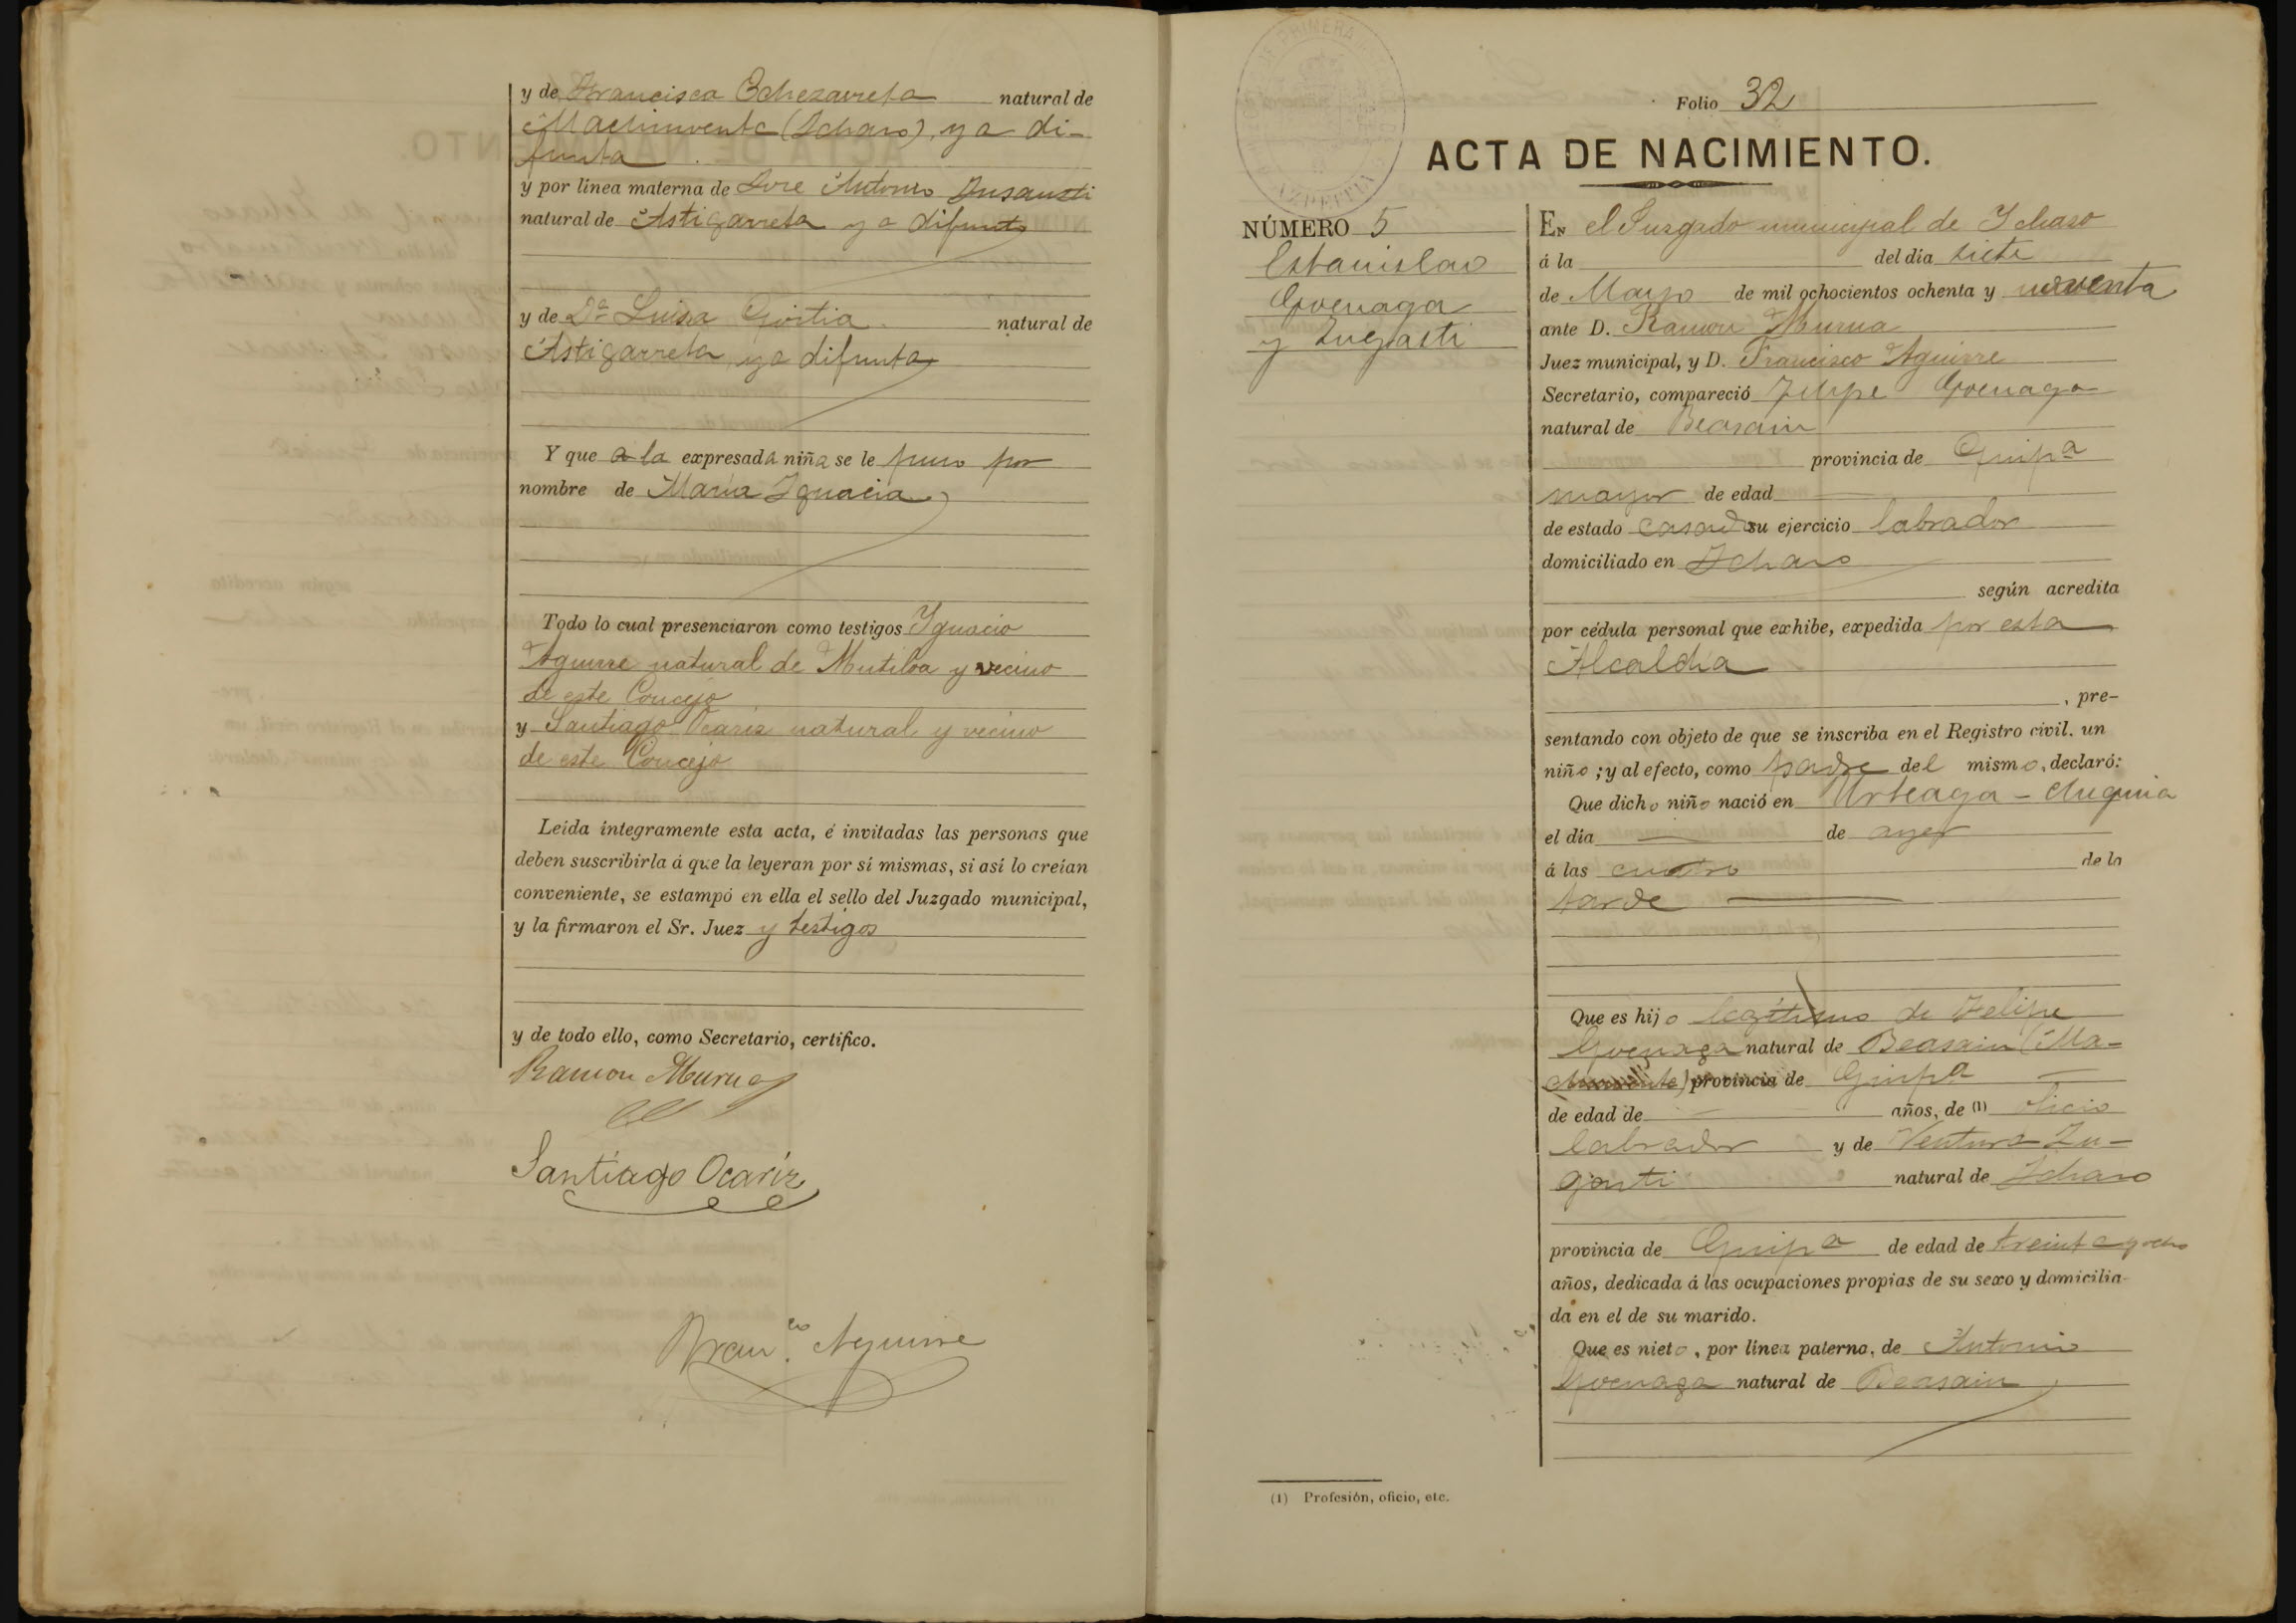 y de Francisca Echezarreta natural de
Machinventa (Ichaso), ya di-
funta
y por línea materna de Jose Antonio Insausti
natural de Astigarreta ya difunto
y de Dª Luisa Goitia natural de
Astigarreta ya difunta
Y que a la expresada niña se le puso por
nombre de María Ignacia
Todo lo cual presenciaron como testigos Ygnacio
Aguirre natural de Mutiloa y vecino
de este Concejo
y Santiago Ocariz natural y vecino
de este Concejo
Leída íntegramente esta acta, é invitadas las personas que
deben suscribirla á que la leyeran por sí mismas, si así lo creían
conveniente, se estampó en ella el sello del Juzgado municipal,
y la firmaron el Sr. Juez y testigos
y de todo ello, como Secretario, certifico.
Ramon Murua
Santiago Ocariz
Fran.co Aguirre
Folio 32
ACTA DE NACIMIENTO.
NÚMERO 5
Estanislao
Goenaga
y Zugasti
EN el Jusgado municipal de Ychaso
á la del día siete
de Mayo de mil ochocientos ochenta y noventa
ante D. Ramon Murua
Juez municipal, y D. Francisco Aguirre
Secretario, compareció Felipe Goenaga
natural de Beasain
provincia de Guipª
mayor de edad
de estado casado su ejercicio labrador
domiciliado en Ichaso
según acredita
por cédula personal que exhibe, expedida por esta
Alcaldia
, pre-
sentando con objeto de que se inscriba en el Registro civil, un
niño; y al efecto, como padre del mismo, declaró:
Que dicho niño nació en Urteaga-
el día de ayer
á las cuatro de la
tarde
Que es hijo legítimo de Felipe
Goenaga natural de Beasain (Ma-
chinventa) provincia de Guipª
de edad de años, de (1) oficio
labrador y de Ventura Zu-
gasti natural de Ichaso
provincia de Guipª de edad de treinta y ocho
años, dedicada á las ocupaciones propias de su sexo y domicilia-
da en el de su marido.
Que es nieto, por línea paterna, de Antonio
Goenaga natural de Beasain
(1) Profesión, oficio, etc.